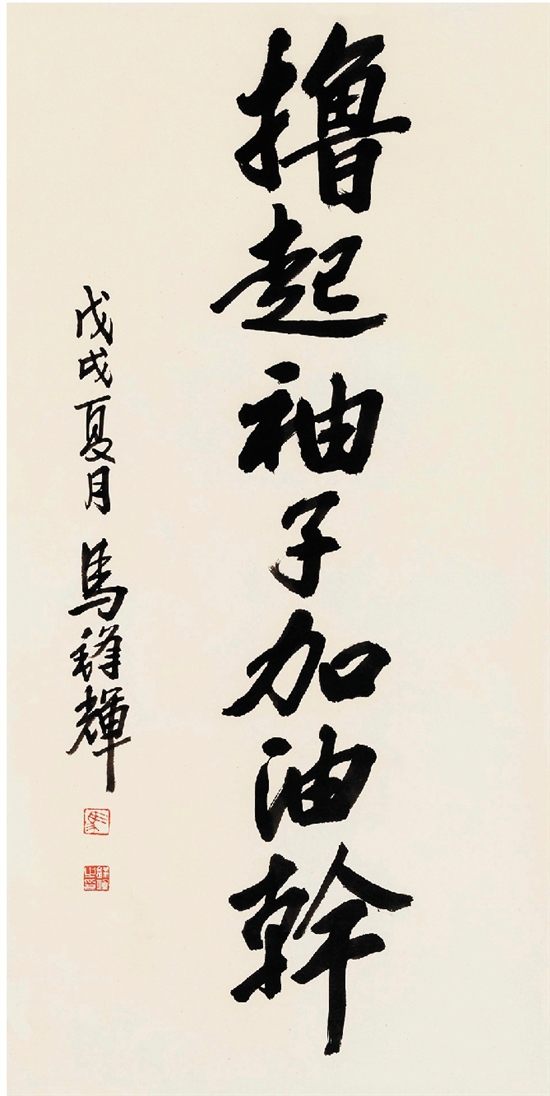 撸起袖子加油幹
戊戌夏月 馬鋒輝